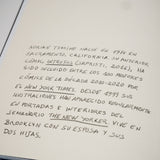 ADRIAN TOMINE NACIÓ EN 1974 EN
SACRAMENTO, CALIFORNIA. SU ANTERIOR
CÓMIC, INTRUSOS (SAPRISTI, 2016), HA
SIDO INCLUIDO ENTRE LOS 100 MEJORES
CÓMICS DE LA DÉCADA 2010-2020 POR
EL NEW YORK TIMES. DESDE 1999 SUS
ILUSTRACIONES HAN APARECIDO REGULARMENTE
EN PORTADAS E INTERIORES DEL
SEMANARIO THE NEW YORKER. VIVE EN
BROOKLYN CON SU ESPOSA Y SUS
DOS HIJAS.